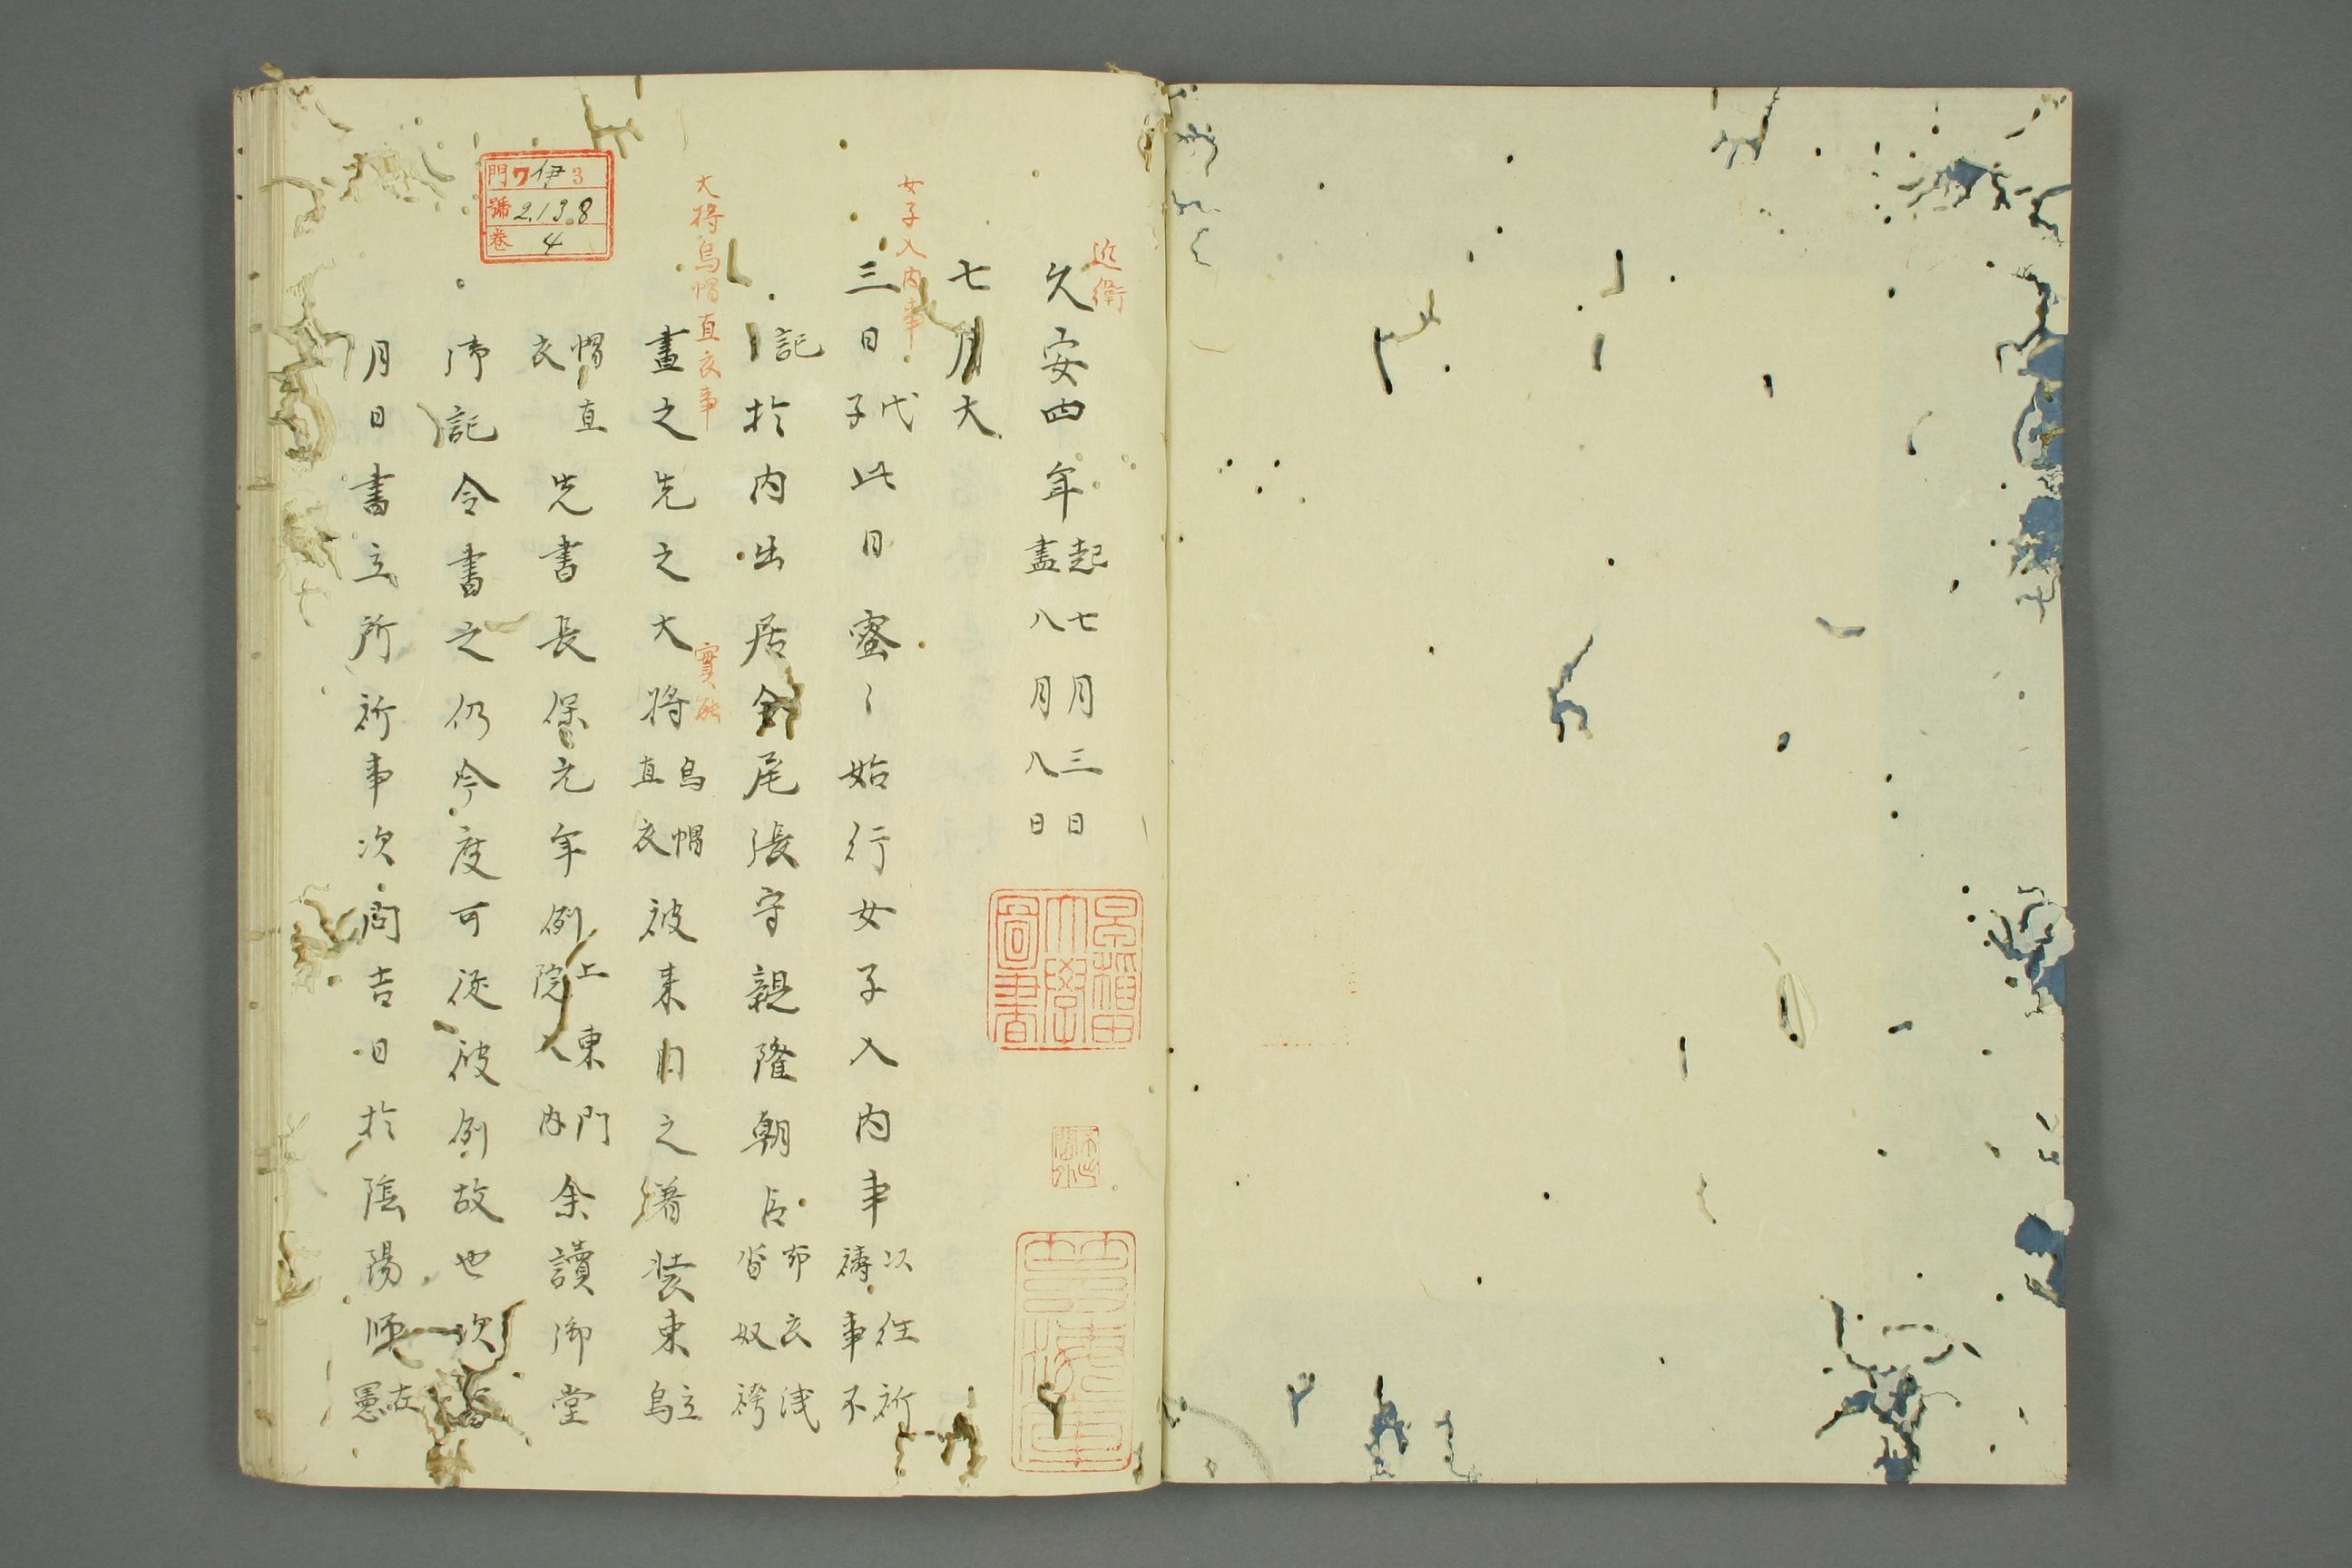 近衛
久安四年 起七月三日 盡八月八日
七月大
女子入内事
三日 代子 此日蜜〻始行女子入内事 以往祈 禱事不
記 於内出居令尾張守親隆朝臣 布衣浅 沓奴袴
大将烏帽直衣事
書之先之大将 烏帽 直衣 被来 之着装束 立烏
實能
帽直 衣 先書長保元年例 上東門 院入内 余讀御堂
御記令書之仍今度可従彼例故也次
月日書立所祈事次問吉日於陰陽師 在 憲
早稲田大學圖書
門 ワ 伊 3
號 2.13.8
卷 4